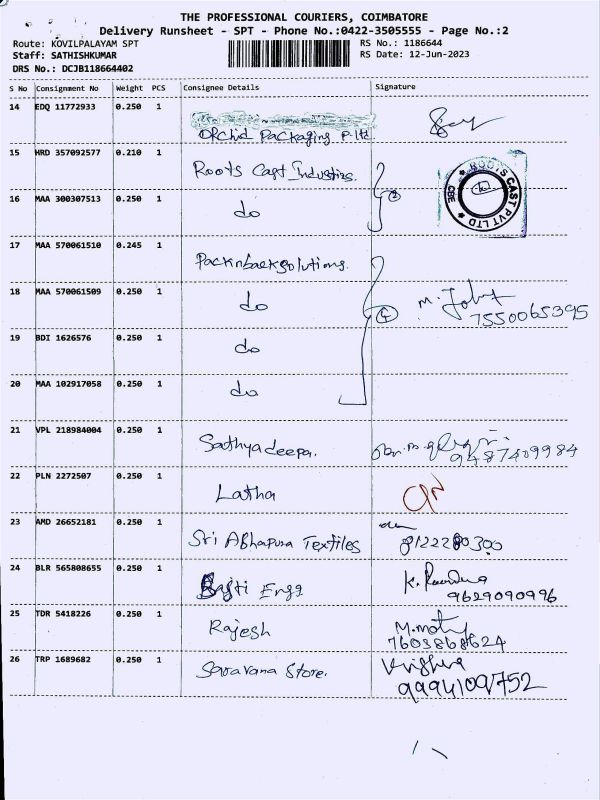 THE PROFESSIONAL COURIERS, COIMBATORE
Delivery Runsheet - SPT - Phone No.:0422-3505555 - Page No.:2
Route: KOVILPALAYAM SPT
RS No.: 1186644
Staff: SATHISHKUMAR
RS Date: 12-Jun-2023
DRS No.: DCJB118664402
S No Consignment No Weight PCS Consignee Details Signature
14 EDQ 11772933 0.250 1
Orchid Packaging P.ltd.
15 HRD 357092577 0.210 1
Roots Cast Industries.
ROOTS CAST PVT LTD CBE
16 MAA 300307513 0.250 1
do
17 MAA 570061510 0.245 1
Packnbacksolutions.
18 MAA 570061509 0.250 1
do
7550065395
19 BDI 1626576 0.250 1
do
20 MAA 102917058 0.250 1
do
21 VPL 218984004 0.250 1
Sathyadeepa. 9487409984
22 PLN 2272507 0.250 1
Latha
23 AMD 26652181 0.250 1
Sri Abhapura Textiles
24 BLR 565808655 0.250 1
Engg 9629090996
25 TDR 5418226 0.250 1
Rajesh
7603868624
26 TRP 1689682 0.250 1
Saravana Store. Krishna
9994109752